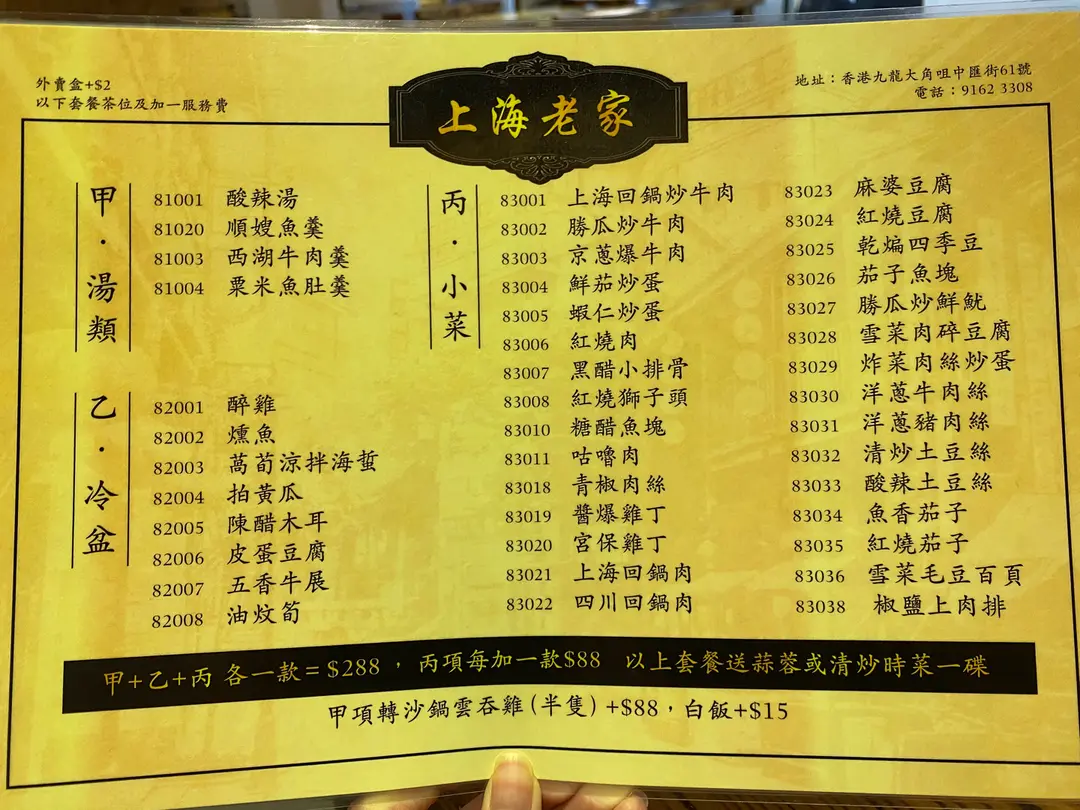 外賣盒+$2
以下套餐茶位及加一服務費
上海老家
地址：香港九龍大角咀中匯街61號
電話：9162 3308
甲·湯類
81001 酸辣湯
81020 順嫂魚羹
81003 西湖牛肉羹
81004 粟米魚肚羹
乙·冷盆
82001 醉雞
82002 燻魚
82003 萵筍涼拌海蜇
82004 拍黃瓜
82005 陳醋木耳
82006 皮蛋豆腐
82007 五香牛展
82008 油炆筍
丙·小菜
83001 上海回鍋炒牛肉
83002 勝瓜炒牛肉
83003 京蔥爆牛肉
83004 鮮茄炒蛋
83005 蝦仁炒蛋
83006 紅燒肉
83007 黑醋小排骨
83008 紅燒獅子頭
83010 糖醋魚塊
83011 咕嚕肉
83018 青椒肉絲
83019 醬爆雞丁
83020 宮保雞丁
83021 上海回鍋肉
83022 四川回鍋肉
83023 麻婆豆腐
83024 紅燒豆腐
83025 乾煸四季豆
83026 茄子魚塊
83027 勝瓜炒鮮魷
83028 雪菜肉碎豆腐
83029 炸菜肉絲炒蛋
83030 洋蔥牛肉絲
83031 洋蔥豬肉絲
83032 清炒土豆絲
83033 酸辣土豆絲
83034 魚香茄子
83035 紅燒茄子
83036 雪菜毛豆百頁
83038 椒鹽上肉排
甲+乙+丙 各一款=$288，丙項每加一款$88 以上套餐送蒜蓉或清炒時菜一碟
甲項轉沙鍋雲吞雞(半隻)+$88，白飯+$15